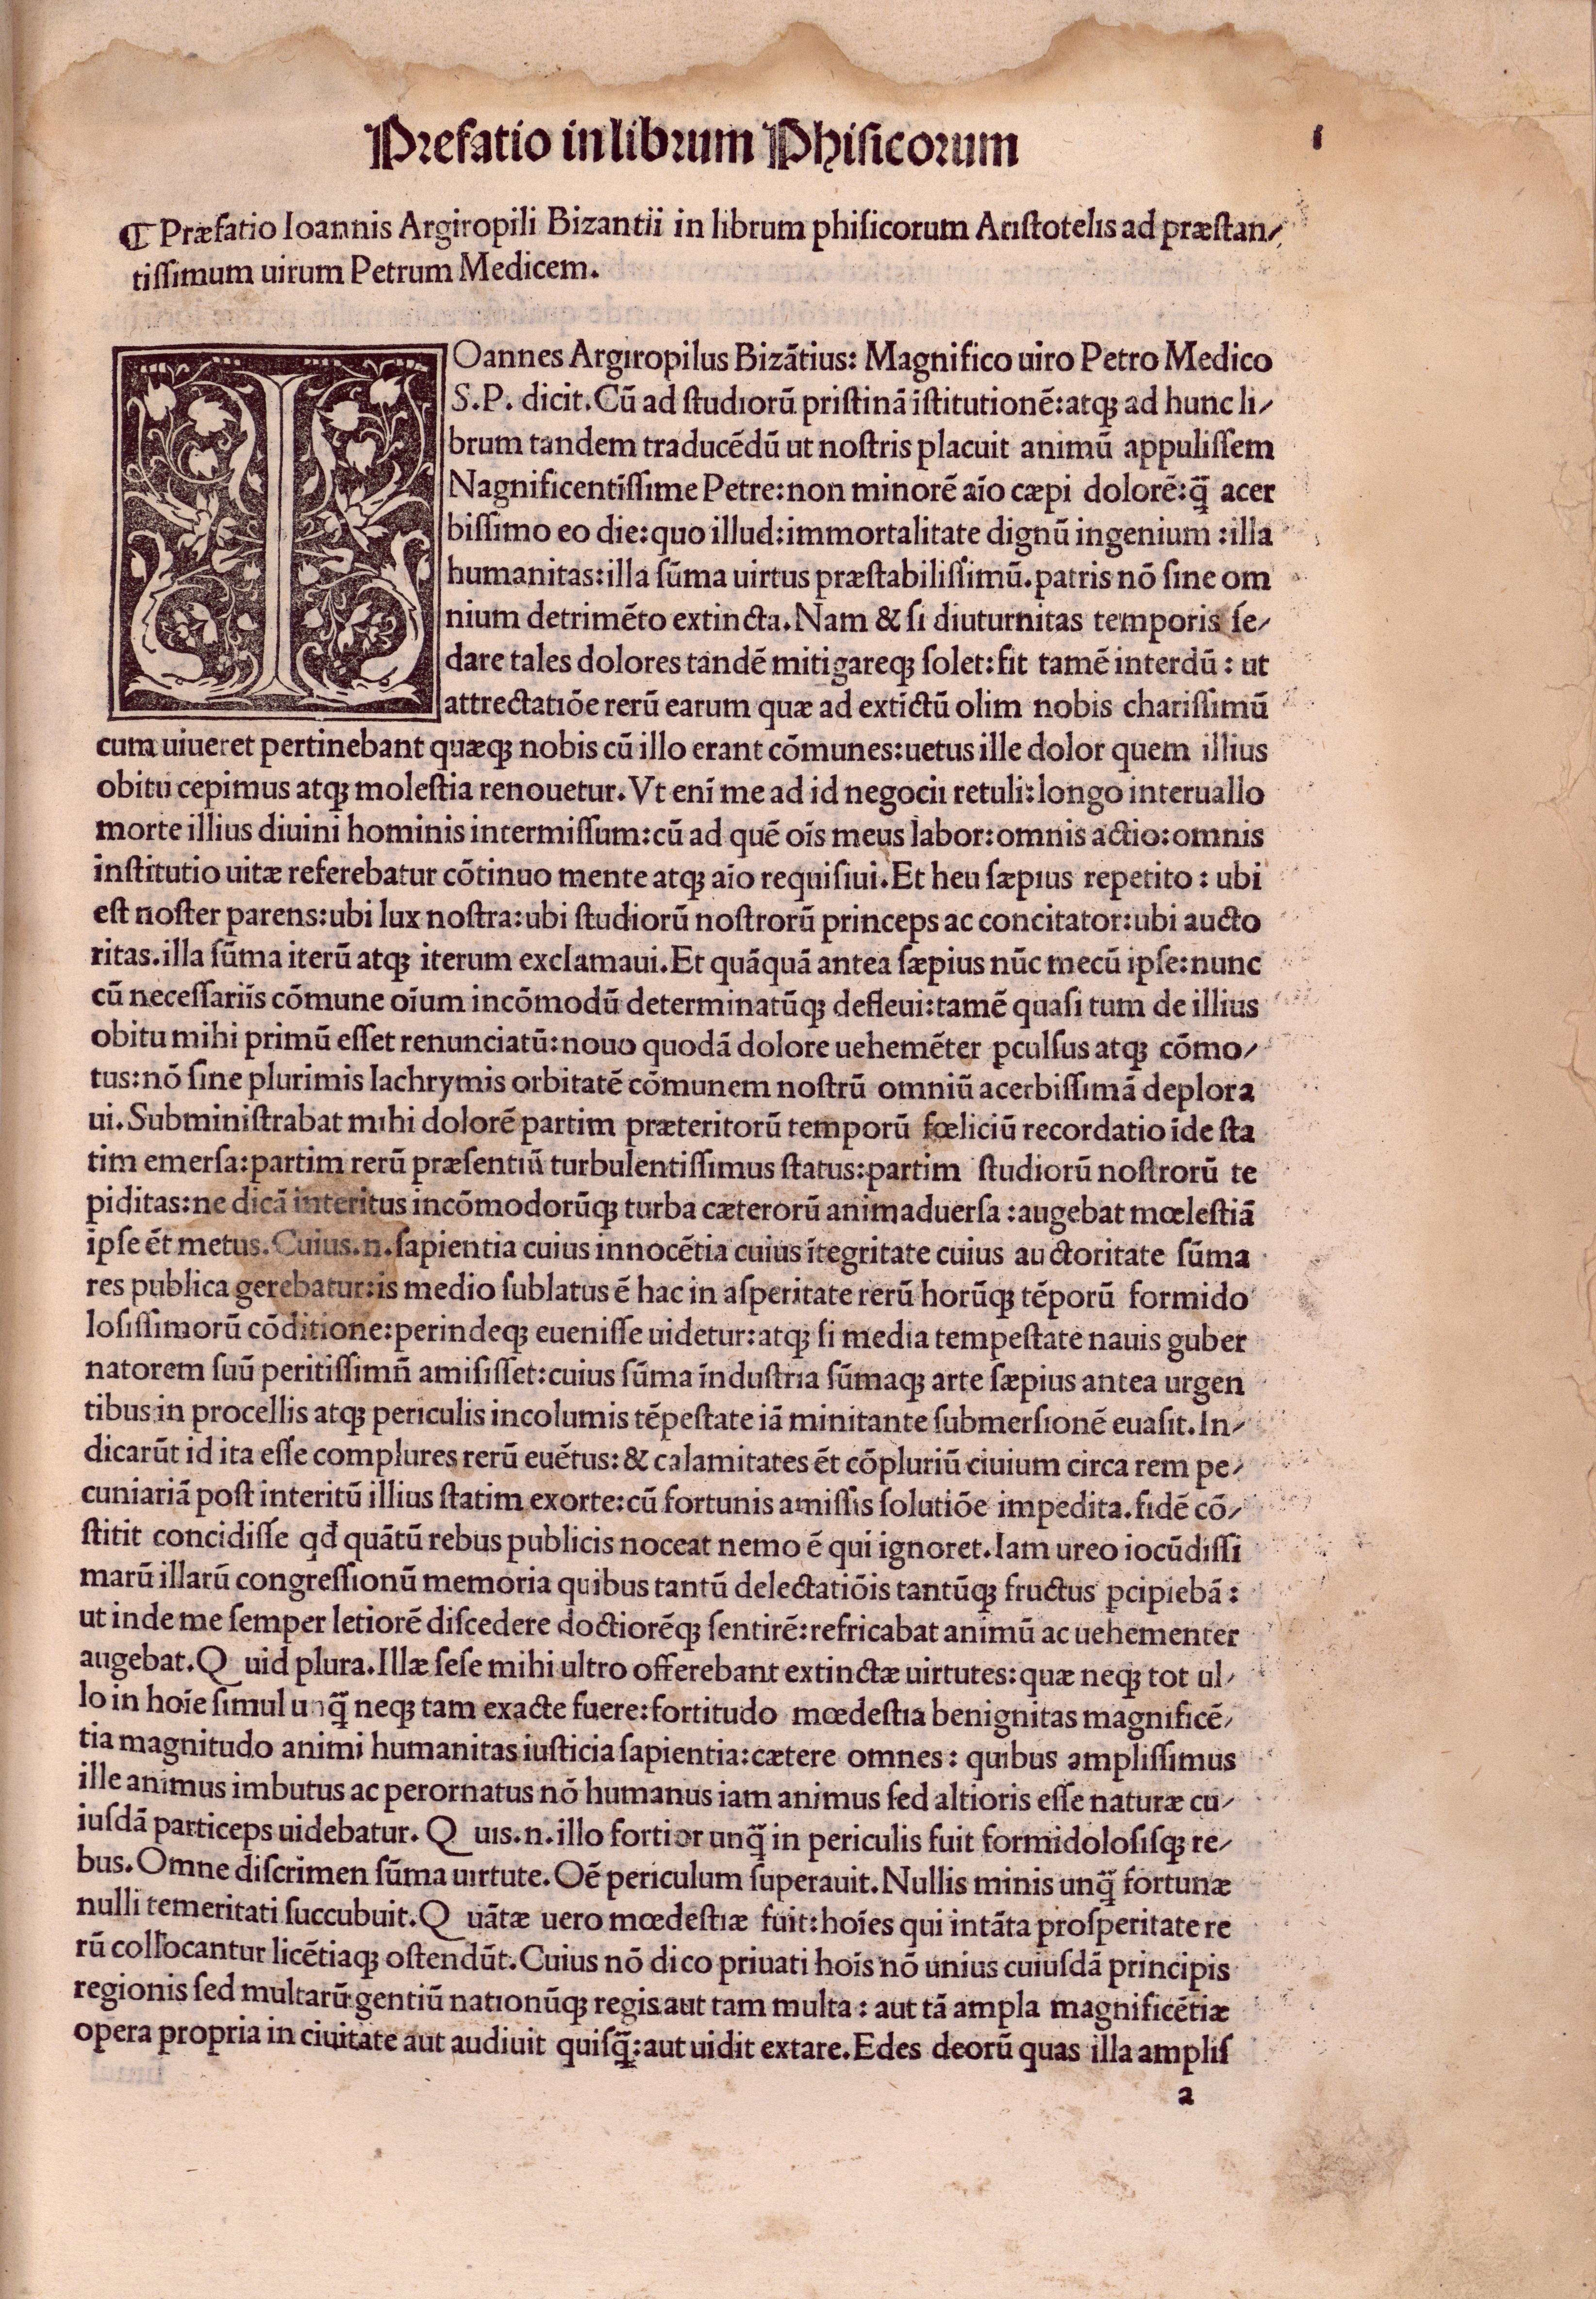 Prefatio in librum Phisicorum
1
¶ Præfatio Ioannis Argiropili Bizantii in librum phisicorum Aristotelis ad præstan-
tissimum uirum Petrum Medicem.
IOannes Argiropilus Bizãtius: Magnifico uiro Petro Medico
S.P. dicit. Cũ ad studiorũ pristinã ĩstitutionẽ:atq̃ ad hunc li-
brum tandem traducẽdũ ut nostris placuit animũ appulissem
Nagnificentissime Petre:non minorẽ aĩo cæpi dolorẽ:q̃ acer
bissimo eo die:quo illud:immortalitate dignũ ingenium :illa
humanitas:illa sũma uirtus præstabilissimũ.patris nõ sine om
nium detrimẽto extincta.Nam & si diuturnitas temporis se-
dare tales dolores tandẽ mitigareq̃ solet:fit tamẽ interdũ : ut
attrectatiõe rerũ earum quæ ad extĩctũ olim nobis charissimũ
cum uiueret pertinebant quæq̃ nobis cũ illo erant cõmunes:uetus ille dolor quem illius
obitu cepimus atq̃ molestia renouetur.Vt enĩ me ad id negocii retuli:longo interuallo
morte illius diuini hominis intermissum:cũ ad quẽ oĩs meus labor:omnis actio:omnis
institutio uitæ referebatur cõtinuo mente atq̃ aĩo requisiui.Et heu sæpius repetito : ubi
est noster parens:ubi lux nostra:ubi studiorũ nostrorũ princeps ac concitator:ubi aucto
ritas.illa sũma iterũ atq̃ iterum exclamaui.Et quãquã antea sæpius nũc mecũ ipse:nunc
cũ necessariis cõmune oĩum incõmodũ determinatũq̃ defleui:tamẽ quasi tum de illius
obitu mihi primũ esset renunciatũ:nouo quodã dolore uehemẽter ꝑculsus atq̃ cõmo-
tus:nõ sine plurimis lachrymis orbitatẽ cõmunem nostrũ omniũ acerbissimã deplora
ui.Subministrabat mihi dolorẽ partim præteritorũ temporũ fœliciũ recordatio ĩde sta
tim emersa:partim rerũ præsentiũ turbulentissimus status:partim studiorũ nostrorũ te
piditas:ne dicã interitus incõmodorũq̃ turba cæterorũ animaduersa :augebat mœlestiã
ipse ẽt metus.Cuius.n.sapientia cuius innocẽtia cuius ĩtegritate cuius auctoritate sũma
res publica gerebatur:is medio sublatus ẽ hac in asperitate rerũ horũq̃ tẽporũ formido
losissimorũ cõditione:perindeq̃ euenisse uidetur:atq̃ si media tempestate nauis guber
natorem suũ peritissimñ amisisset:cuius sũma ĩndustria sũmaq̃ arte sæpius antea urgen
tibus in procellis atq̃ periculis incolumis tẽpestate iã minitante submersionẽ euasit.In-
dicarũt id ita esse complures rerũ euẽtus:& calamitates ẽt cõpluriũ ciuium circa rem pe-
cuniariã post interitũ illius statim exorte:cũ fortunis amissis solutiõe impedita.fidẽ cõ-
stitit concidisse qđ quãtũ rebus publicis noceat nemo ẽ qui ignoret.Iam ureo iocũdissi
marũ illarũ congressionũ memoria quibus tantũ delectatiõis tantũq̃ fructus ꝑcipiebã:
ut inde me semper letiorẽ discedere doctiorẽq̃ sentirẽ:refricabat animũ ac uehementer
augebat.Q uid plura.Illæ sese mihi ultro offerebant extinctæ uirtutes:quæ neq̃ tot ul-
lo in hoĩe simul unq̃ neq̃ tam exacte fuere:fortitudo mœdestia benignitas magnificẽ-
tia magnitudo animi humanitas iusticia sapientia:cætere omnes: quibus amplissimus
ille animus imbutus ac perornatus nõ humanus iam animus sed altioris esse naturæ cu-
iusdã particeps uidebatur. Q uis.n.illo fortior unq̃ in periculis fuit formidolosisq̃ re-
bus.Omne discrimen sũma uirtute.Oẽ periculum superauit.Nullis minis unq̃ fortunæ
nulli temeritati succubuit.Q uãtæ uero mœdestiæ fuit:hoĩes qui intãta prosperitate re
rũ collocantur licẽtiaq̃ ostendũt.Cuius nõ dico priuati hoĩs nõ unius cuiusdã principis
regionis sed multarũ gentiũ nationũq̃ regis aut tam multa : aut tã ampla magnificẽtiæ
opera propria in ciuitate aut audiuit quisq̃:aut uidit extare.Edes deorũ quas illa amplis
a